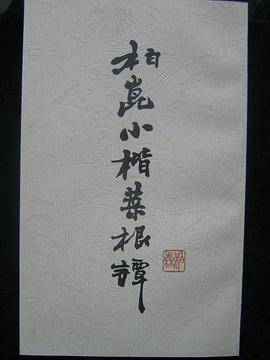 柏崑小楷菜根譚